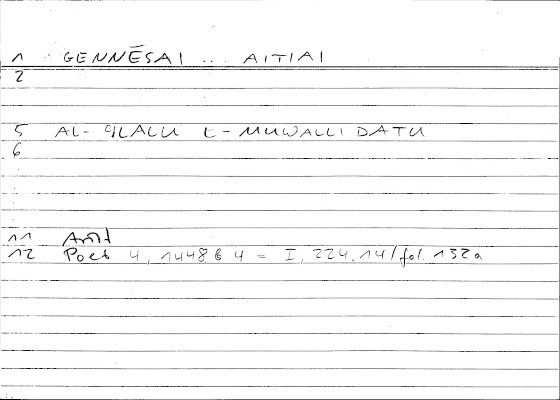 1 GENNĒSAI ... AITIAI
2
5 AL-ʿILALU L-MUWALLIDATU
6
11 Arist
12 Poet 4, 1448 b 4 = I, 224.14/fol. 132a